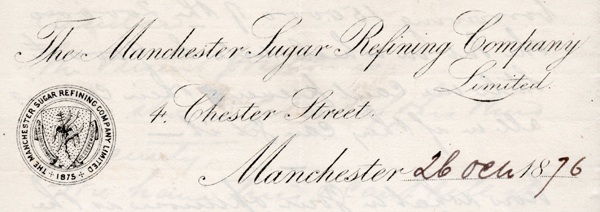 The Manchester Sugar Refining Company
Limited.
4. Chester Street.
THE MANCHESTER SUGAR REFINING COMPANY LIMITED
1875
Manchester 26 Oct 1876